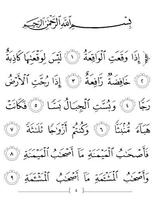 بِسْمِ اللَّهِ الرَّحْمَٰنِ الرَّحِيمِ
إِذَا وَقَعَتِ الْوَاقِعَةُ ١ لَيْسَ لِوَقْعَتِهَا كَاذِبَةٌ
٢ خَافِضَةٌ رَافِعَةٌ ٣ إِذَا رُجَّتِ الْأَرْضُ
رَجًّا ٤ وَبُسَّتِ الْجِبَالُ بَسًّا ٥ فَكَانَتْ
هَبَاءً مُنْبَثًّا ٦ وَكُنْتُمْ أَزْوَاجًا ثَلَاثَةً ٧
فَأَصْحَابُ الْمَيْمَنَةِ مَا أَصْحَابُ الْمَيْمَنَةِ ٨
وَأَصْحَابُ الْمَشْأَمَةِ مَا أَصْحَابُ الْمَشْأَمَةِ ٩
٤